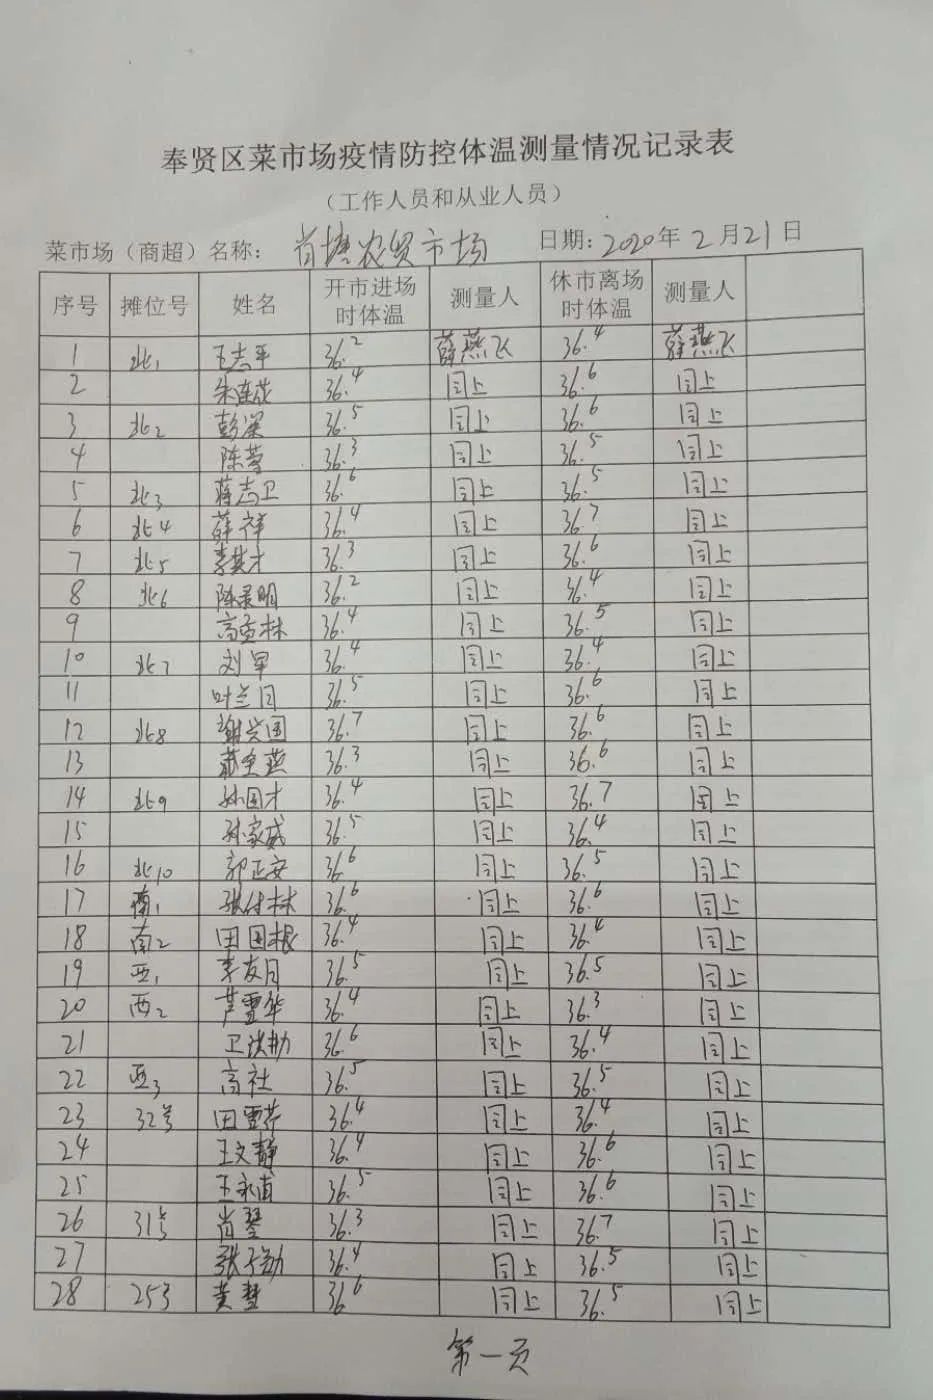 奉贤区菜市场疫情防控体温测量情况记录表
（工作人员和从业人员）
菜市场（商超）名称： 肖塘农贸市场 日期：2020年2月21日
序号 摊位号 姓名 开市进场时体温 测量人 休市离场时体温 测量人
1 北1 王志平 36.2 薛燕飞 36.4 薛燕飞
2 朱连花 36.4 同上 36.6 同上
3 北2 彭深 36.5 同上 36.6 同上
4 陈莺 36.3 同上 36.5 同上
5 北3 蒋志卫 36.6 同上 36.5 同上
6 北4 薛祥 36.4 同上 36.7 同上
7 北5 李其才 36.3 同上 36.6 同上
8 北6 陈景明 36.2 同上 36.4 同上
9 高孟林 36.4 同上 36.5 同上
10 北7 刘军 36.4 同上 36.4 同上
11 叶兰月 36.5 同上 36.6 同上
12 北8 谢兴国 36.7 同上 36.6 同上
13 36.3 同上 36.6 同上
14 北9 孙国才 36.4 同上 36.7 同上
15 孙家威 36.5 同上 36.4 同上
16 北10 郭正安 36.6 同上 36.5 同上
17 南1 张付林 36.6 同上 36.6 同上
18 南2 田国根 36.4 同上 36.4 同上
19 西1 李友月 36.5 同上 36.5 同上
20 西2 36.4 同上 36.3 同上
21 36.6 同上 36.4 同上
22 西3 高社 36.5 同上 36.5 同上
23 32号 田雪芹 36.4 同上 36.4 同上
24 王文静 36.4 同上 36.6 同上
25 王永甫 36.5 同上 36.6 同上
26 31号 肖琴 36.3 同上 36.7 同上
27 张子勋 36.4 同上 36.5 同上
28 253 黄慧 36.6 同上 36.5 同上
第一页